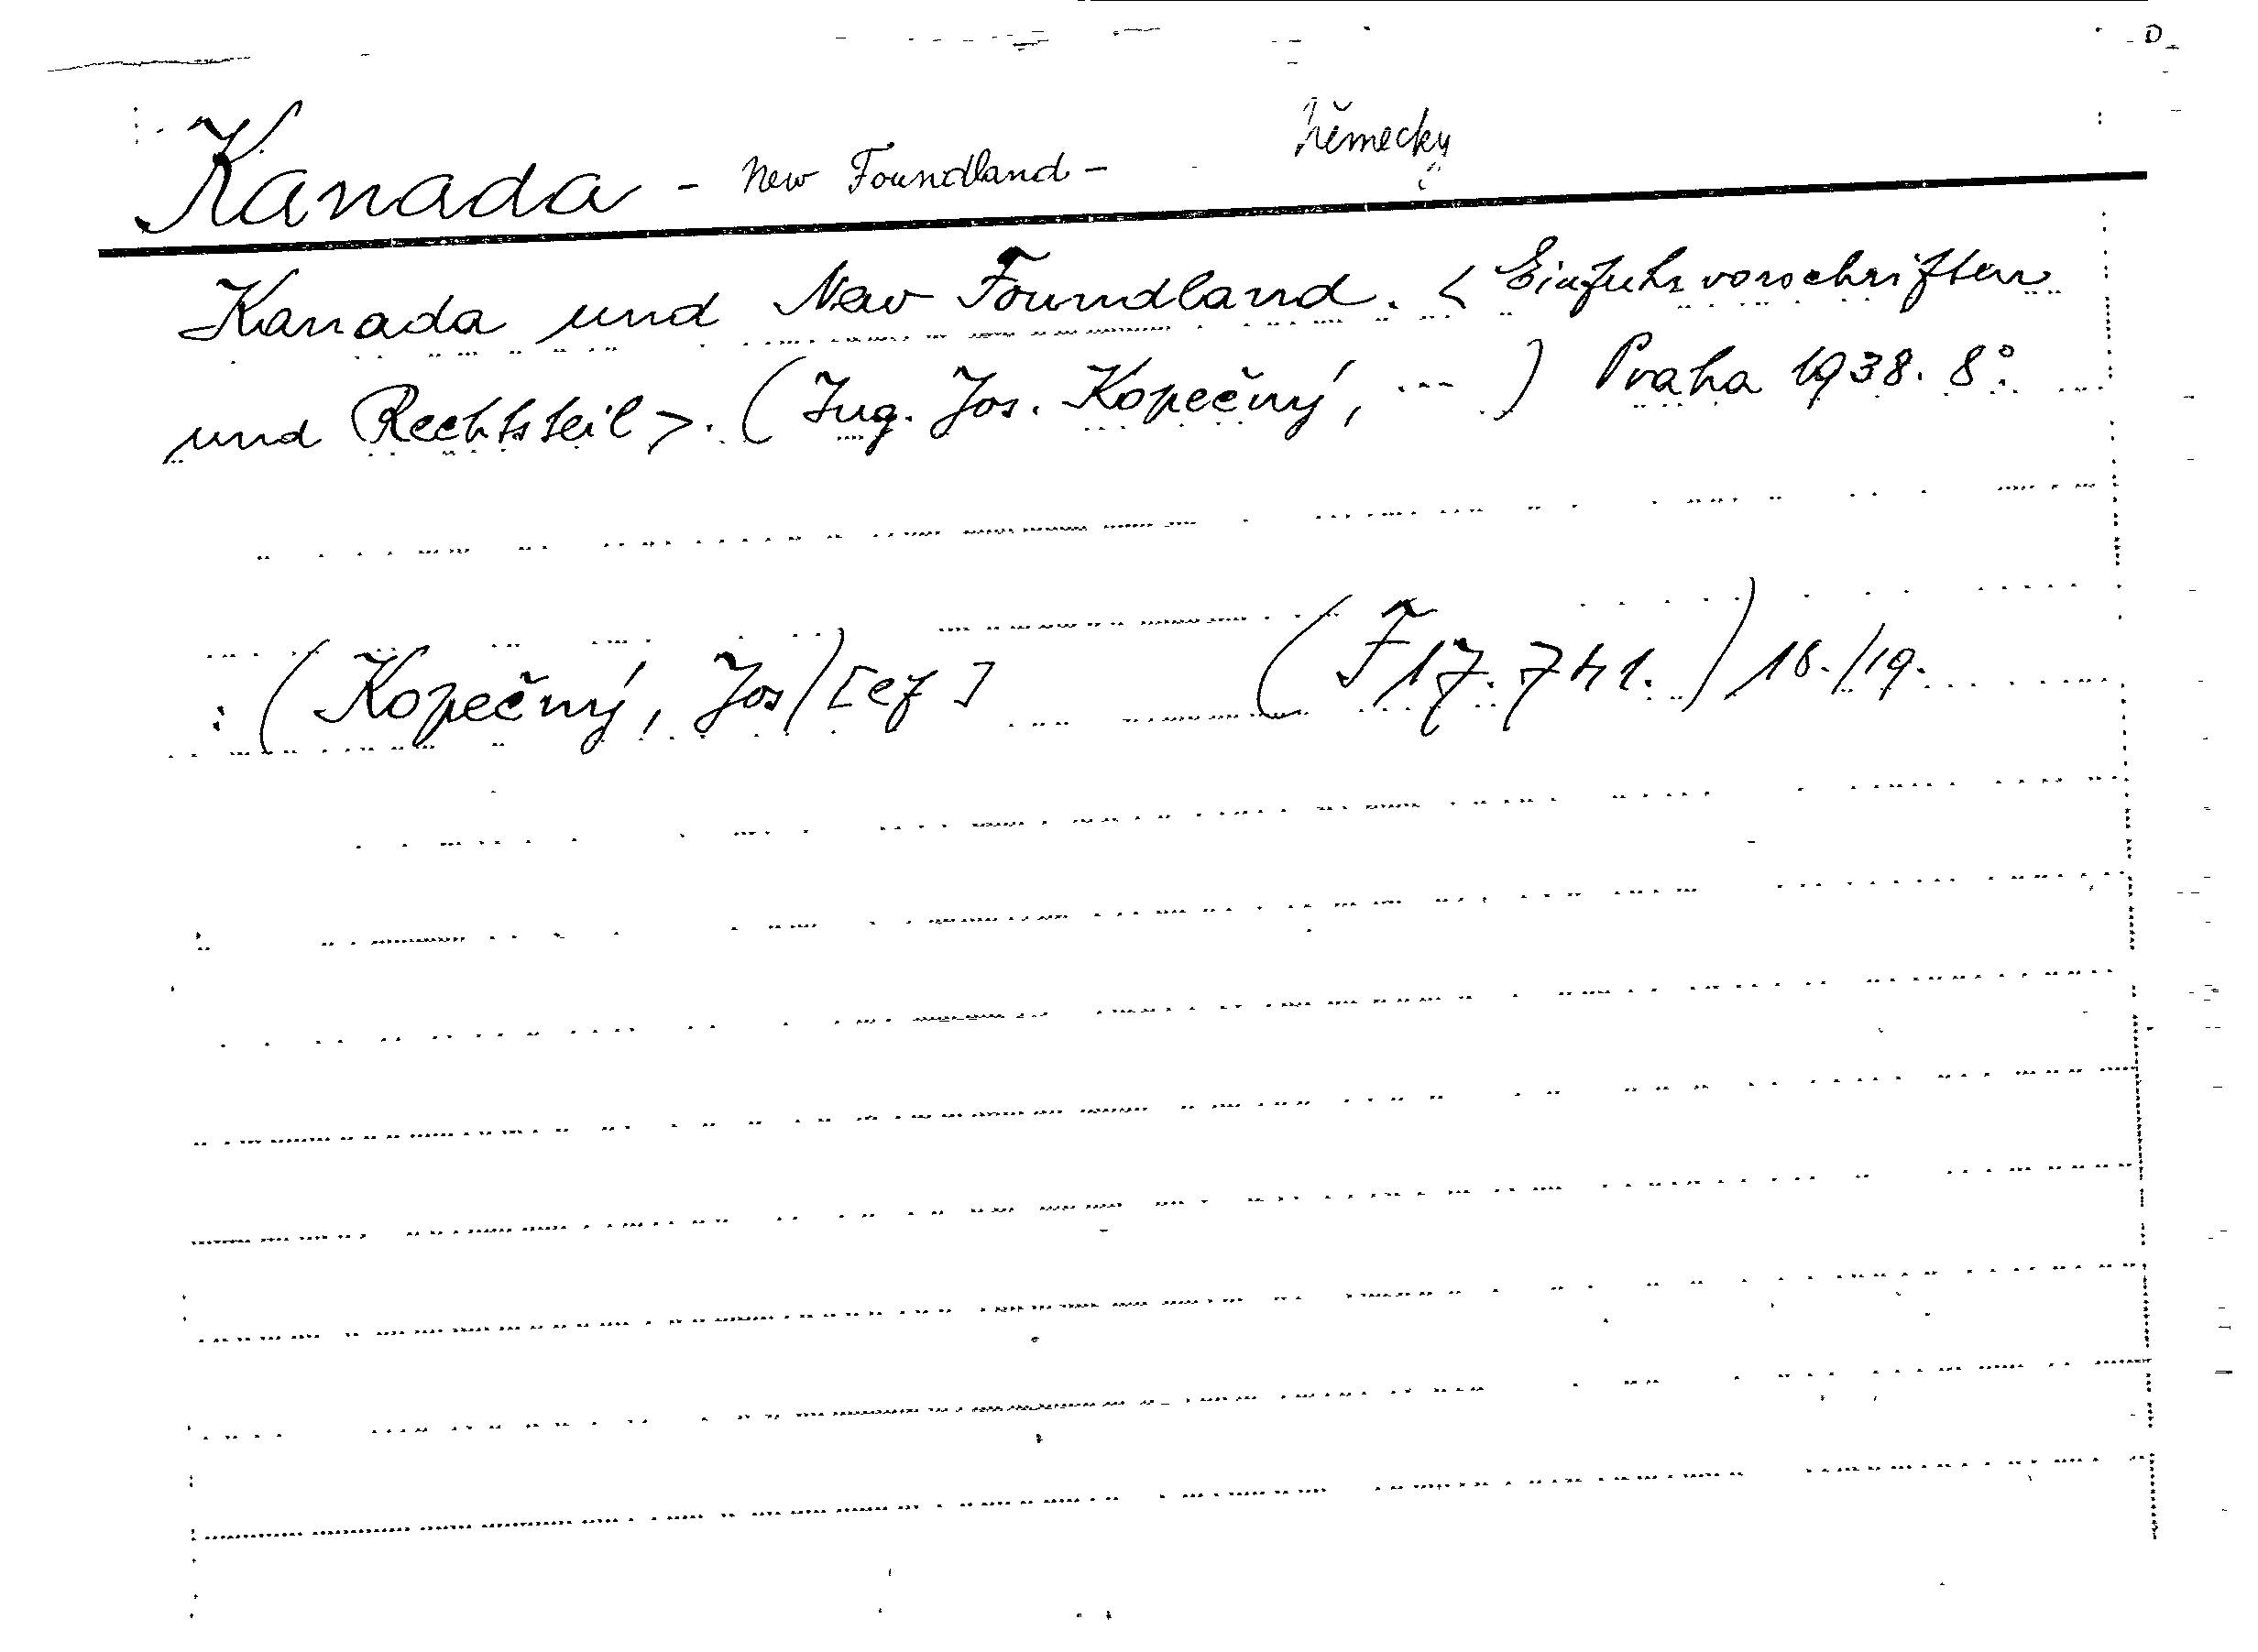 Kanada - New Foundland - Německy
Kanada und New Foundland. < Einfuhrvorschriften
und Rechtsteil >. (Ing. Jos. Kopečný, ...) Praha 1938. 8°.
: (Kopečný, Jos) [ef] (F 17.741.) 18./19.